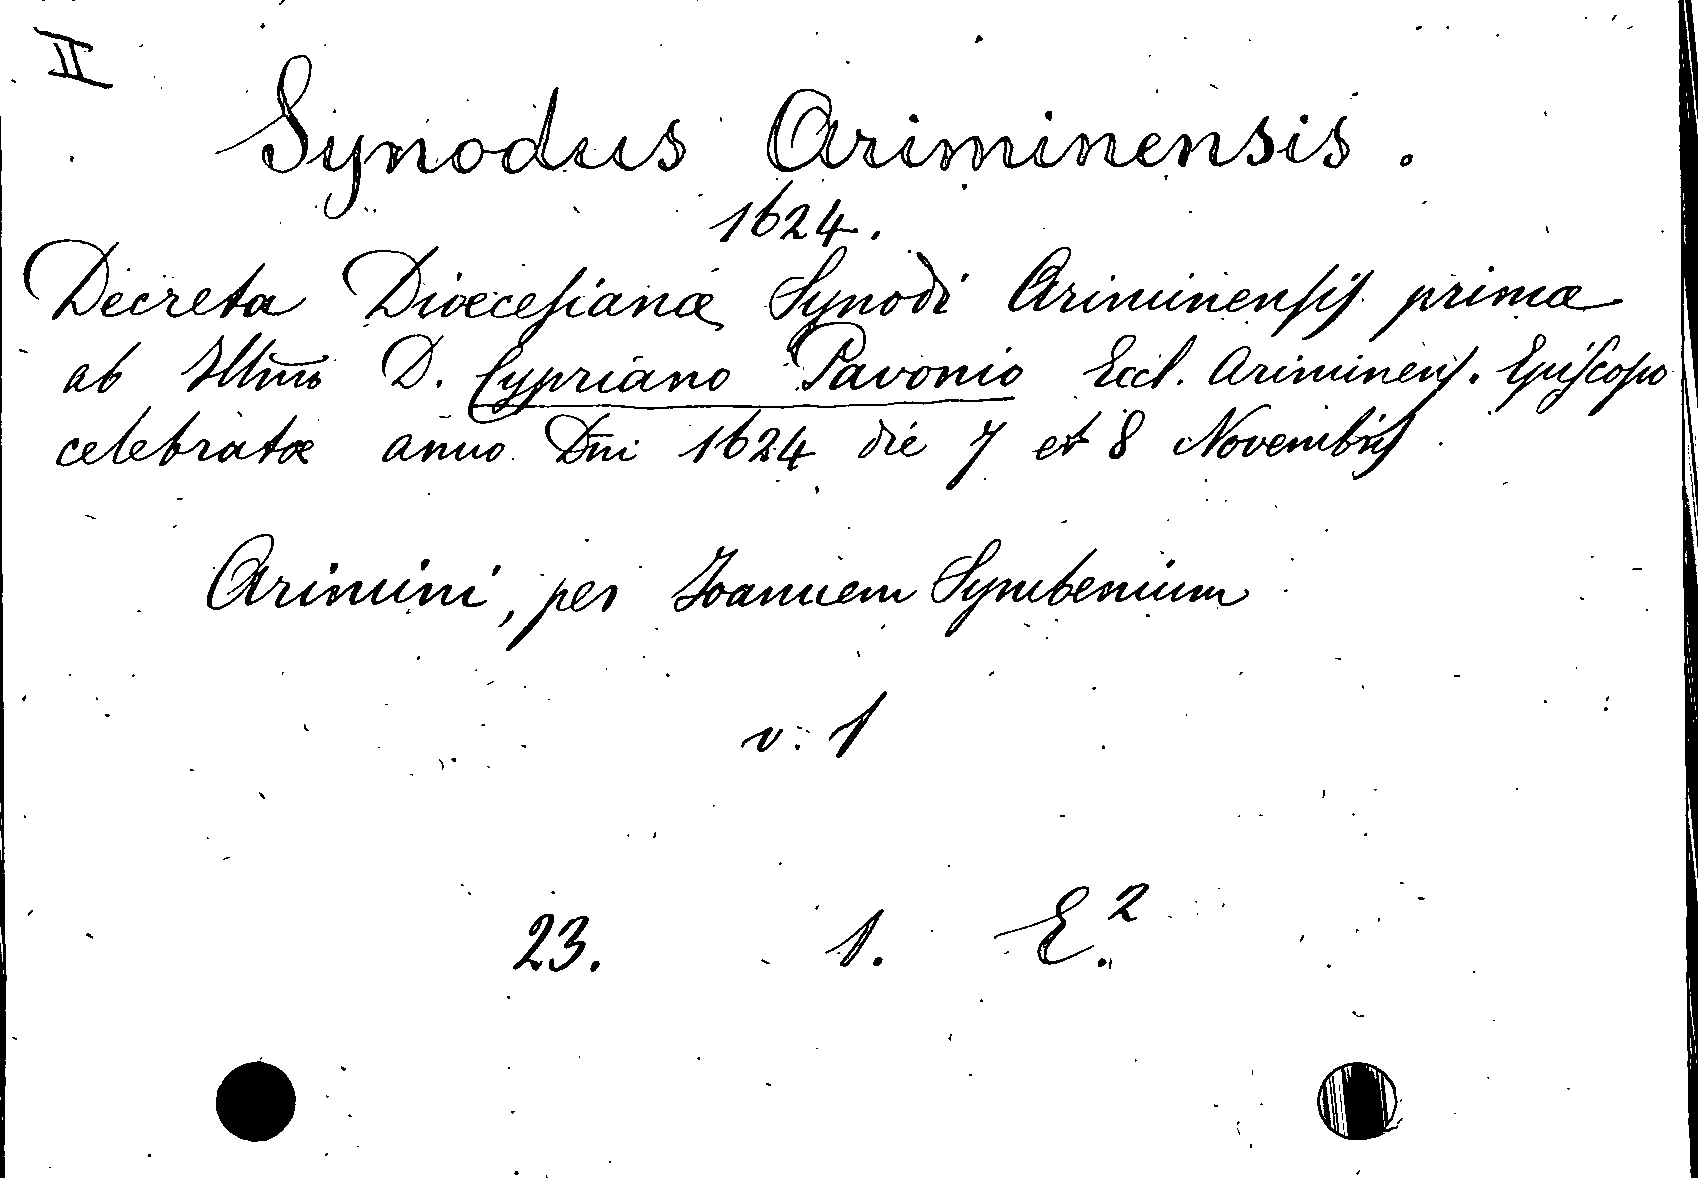 II
Synodus Ariminensis.
1624.
Decreta Diœcesianæ Synodi Ariminensis primæ
ab Illm̃o D. Cypriano Pavonio Eccl. Ariminens. Episcopo
celebratæ anno Dñi 1624 die 7 et 8 Novembris
Arimini, per Joannem Symbenium
v. 1
23. 1. E.²